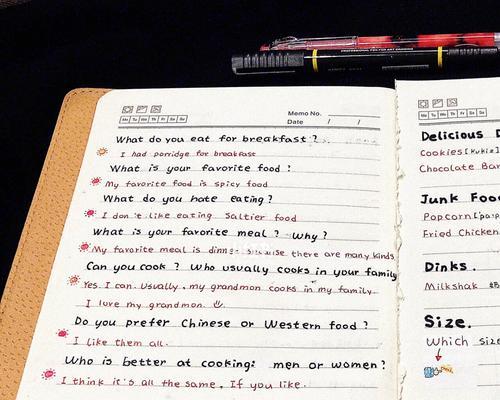 Memo No.
Mo Tu We Th Fr Sa Su
Date / /
What do you eat for breakfast?
I had porridge for breakfast
What is your favorite food?
My favorite food is spicy food
What do you hate eating?
I don't like eating Saltier food
What is your favorite meal? Why?
My favorite meal is because there are many kinds
Can you cook? Who usually cooks in your family
Yes. I can. Usually, my grandmon cooks in my family.
I love my grandmon.
Do you prefer Chinese or Western food?
I like them all.
Who is better at cooking: men or women?
I think it's all the same. If you like.
Mo Tu We Th Fr Sa Su
Delicious D
Cookies
Chocolate Bar
Junk Foo
Popcorn
Fried Chicken
Dinks.
Milkshak
Size.
Which size